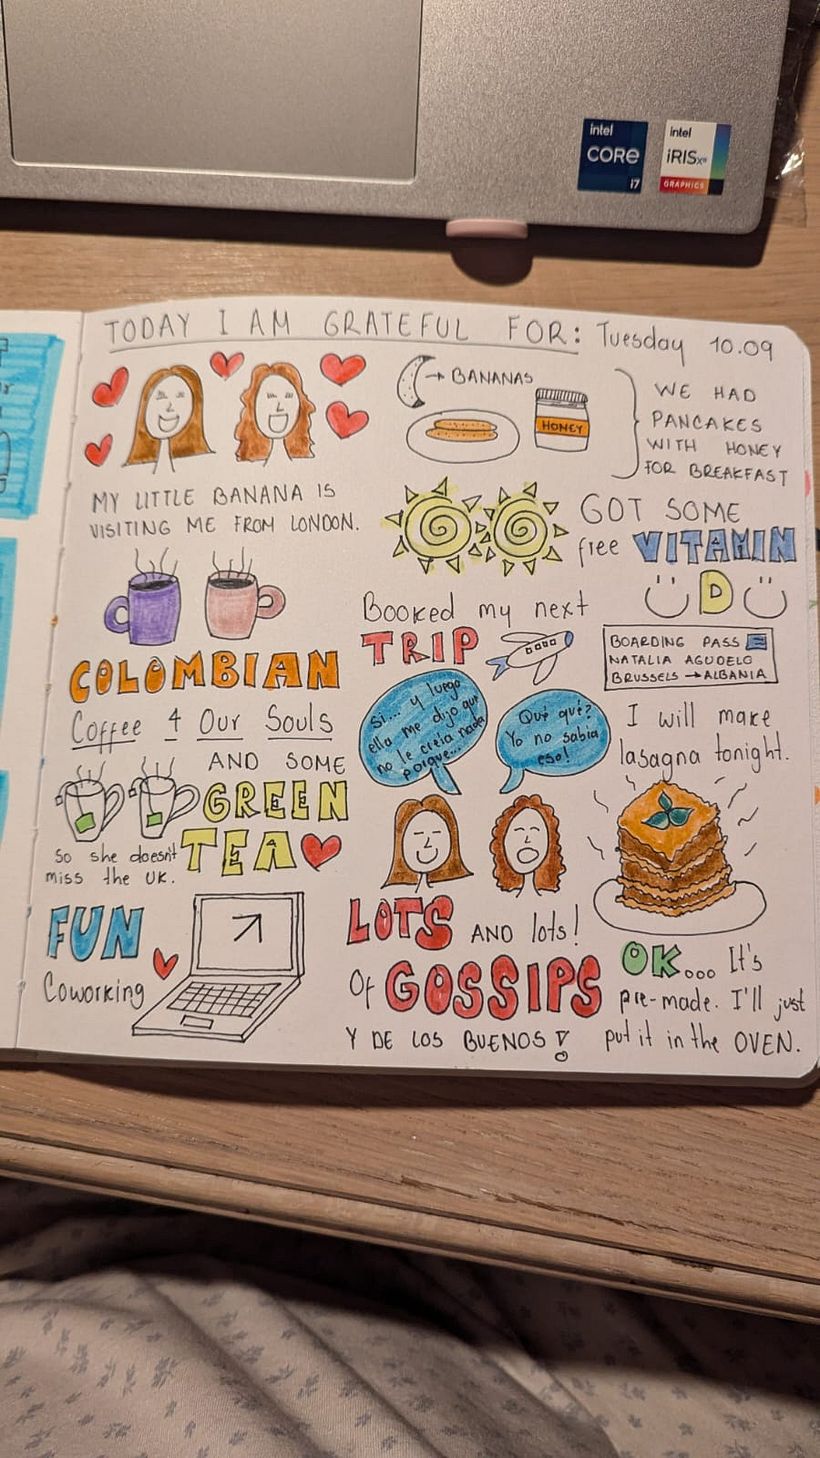 intel
CORe
i7
intel
iRISxe
GRAPHICS
TODAY I AM GRATEFUL FOR: Tuesday 10.09
MY LITTLE BANANA IS
VISITING ME FROM LONDON.
→ BANANAS
HONEY
WE HAD
PANCAKES
WITH HONEY
FOR BREAKFAST
GOT SOME
free VITAMIN
D
COLOMBIAN
Coffee 4 Our Souls
AND SOME
GREEN
TEA
So she doesn't
miss the UK.
Booked my next
TRIP
BOARDING PASS
NATALIA AGUDELO
BRUSSELS → ALBANIA
Si... y luego
ella me dijo que
no le creía nada
porque...
Qué qué?
Yo no sabía
eso!
LOTS AND lots!
Of GOSSIPS
Y DE LOS BUENOS!
I will make
lasagna tonight.
OK... It's
pre-made. I'll just
put it in the OVEN.
FUN
Coworking